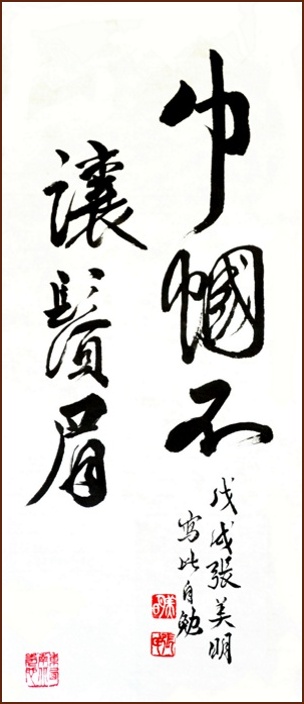 巾幗不
讓鬚眉
戊戌張美明
寫此自勉